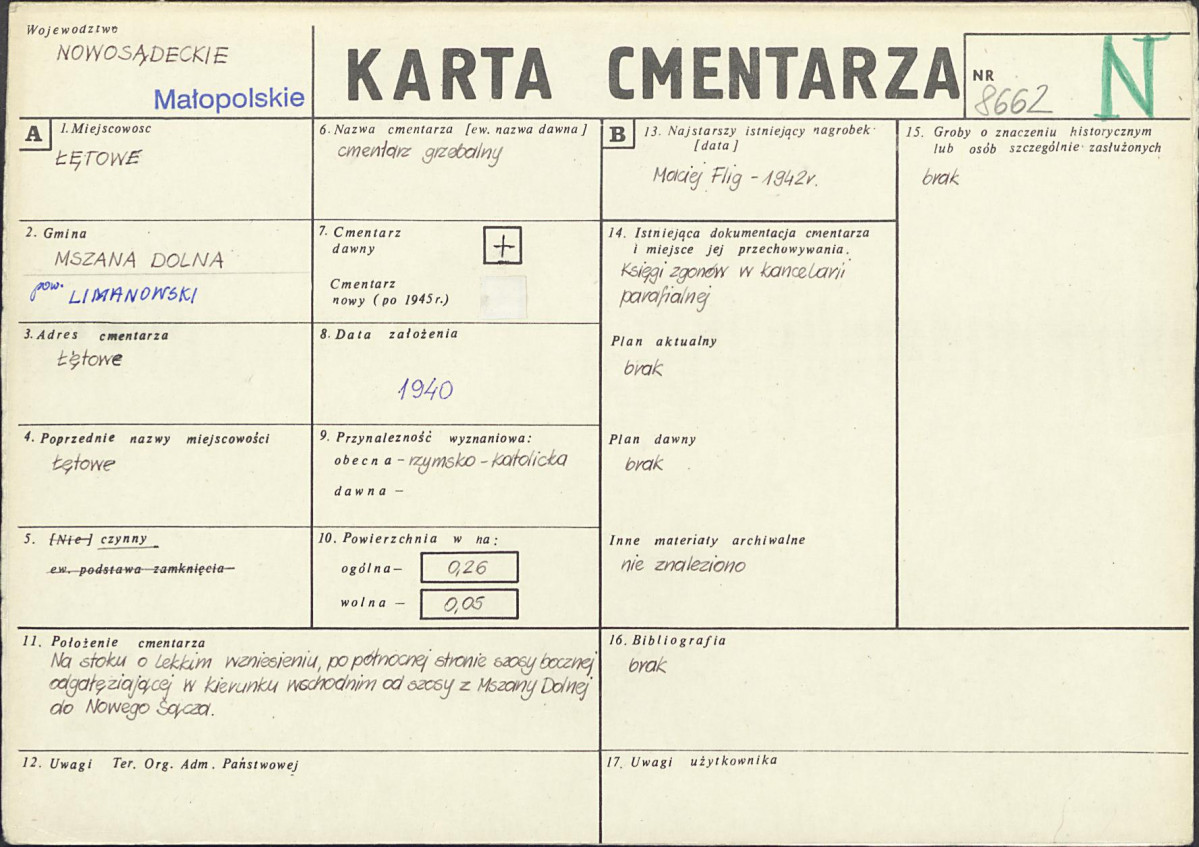 Województwo
NOWOSĄDECKIE
Małopolskie
KARTA CMENTARZA
NR
8662
N
A
1. Miejscowosc
ŁĘTOWE
2. Gmina
MSZANA DOLNA
pow. LIMANOWSKI
3. Adres cmentarza
Łętowe
4. Poprzednie nazwy miejscowości
Łętowe
5. [Nie] czynny
ew. podstawa zamknięcia
6. Nazwa cmentarza [ew. nazwa dawna]
cmentarz grzebalny
7. Cmentarz
dawny
+
Cmentarz
nowy (po 1945 r.)
8. Data założenia
1940
9. Przynalezność wyznaniowa:
obecna - rzymsko - katolicka
dawna -
10. Powierzchnia w ha:
ogólna - 0,26
wolna - 0,05
11. Położenie cmentarza
Na stoku o lekkim wzniesieniu, po północnej stronie szosy bocznej
odgałęziającej w kierunku wschodnim od szosy z Mszany Dolnej
do Nowego Sącza.
12. Uwagi Ter. Org. Adm. Państwowej
B
13. Najstarszy istniejący nagrobek
[data]
Maciej Flig - 1942r.
14. Istniejąca dokumentacja cmentarza
i miejsce jej przechowywania.
Księgi zgonów w kancelarii
parafialnej
Plan aktualny
brak
Plan dawny
brak
Inne materiały archiwalne
nie znaleziono
15. Groby o znaczeniu historycznym
lub osób szczególnie zasłużonych
brak
16. Bibliografia
brak
17. Uwagi użytkownika